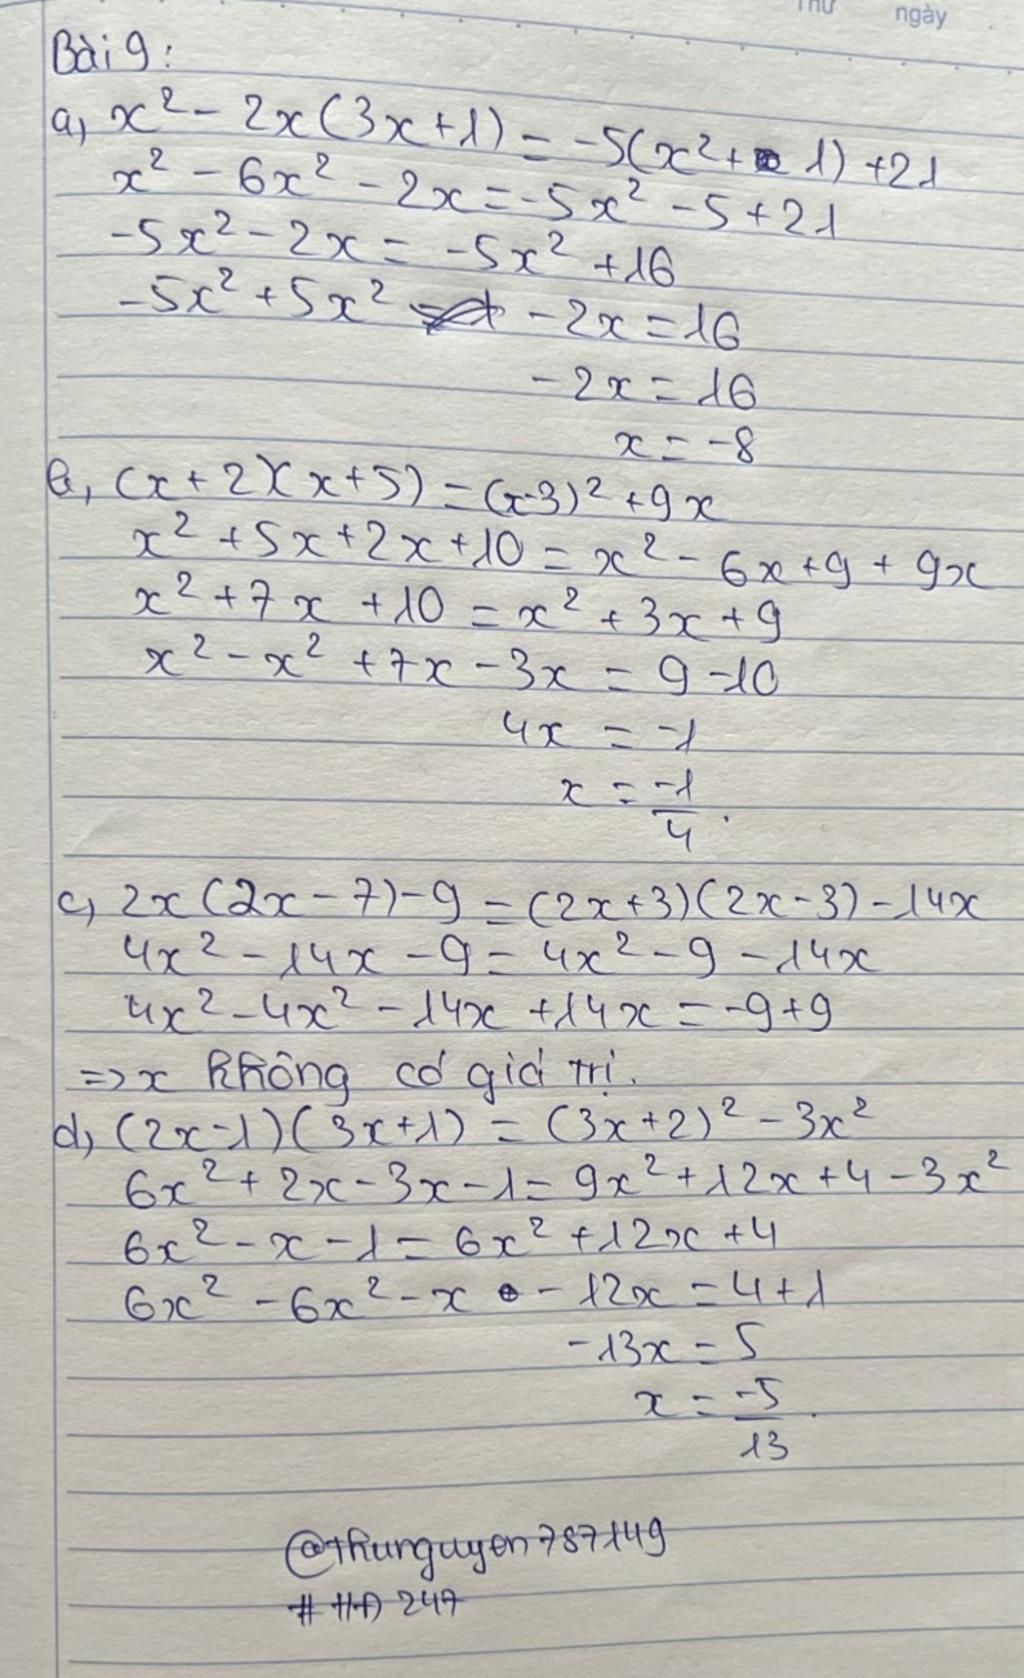 Thứ ngày
Bài 9:
a, x² - 2x(3x+1) = -5(x²+ 1) +21
x² - 6x² - 2x = -5x² - 5 + 21
-5x² - 2x = -5x² + 16
-5x² + 5x² - 2x = 16
-2x = 16
x = -8
b, (x+2)(x+5) = (x-3)² + 9x
x² + 5x + 2x + 10 = x² - 6x + 9 + 9x
x² + 7x + 10 = x² + 3x + 9
x² - x² + 7x - 3x = 9 - 10
4x = -1
x = -1/4.
c, 2x(2x - 7) - 9 = (2x+3)(2x-3) - 14x
4x² - 14x - 9 = 4x² - 9 - 14x
4x² - 4x² - 14x + 14x = -9 + 9
=> x không có giá trị.
d, (2x-1)(3x+1) = (3x+2)² - 3x²
6x² + 2x - 3x - 1 = 9x² + 12x + 4 - 3x²
6x² - x - 1 = 6x² + 12x + 4
6x² - 6x² - x - 12x = 4 + 1
-13x = 5
x = -5/13.
@thunguyen787149
# HĐ 247